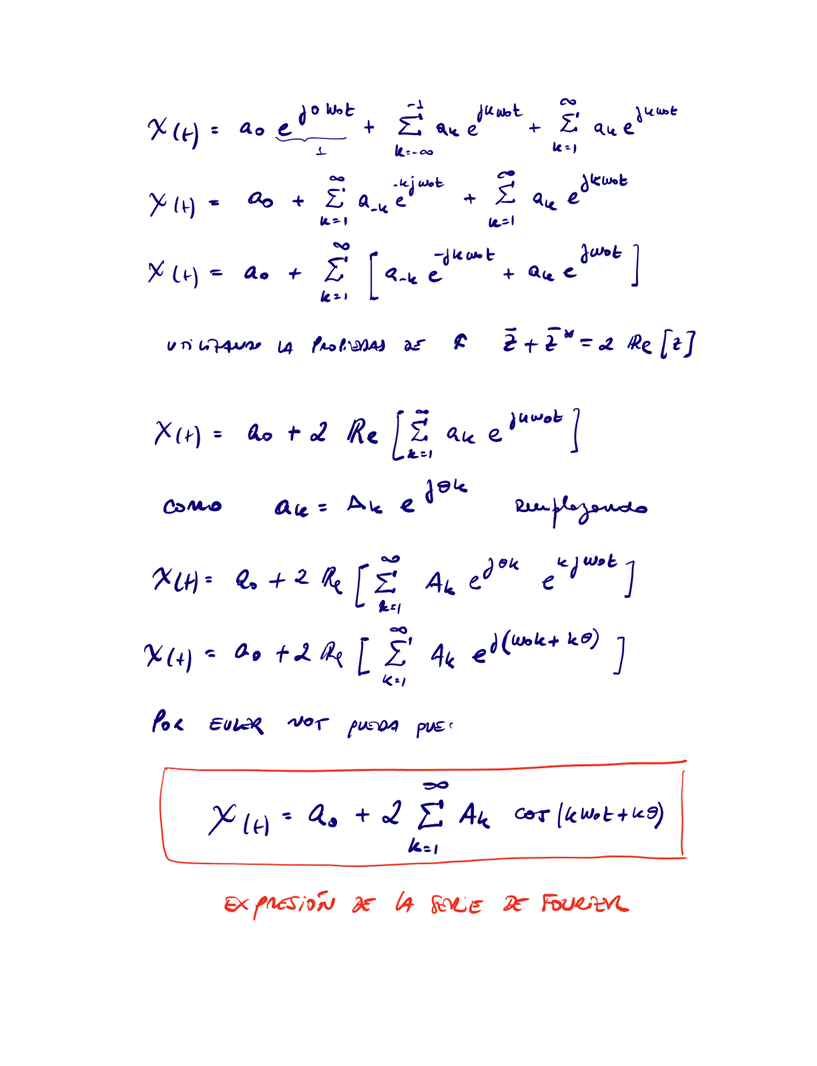 x(t) = a₀ e^{j0ω₀t} + Σ_{k=-∞}^{-1} aₖ e^{jkω₀t} + Σ_{k=1}^{∞} aₖ e^{jkω₀t}
1
x(t) = a₀ + Σ_{k=1}^{∞} a₋ₖ e^{-kjω₀t} + Σ_{k=1}^{∞} aₖ e^{jkω₀t}
x(t) = a₀ + Σ_{k=1}^{∞} [ a₋ₖ e^{-jkω₀t} + aₖ e^{jω₀t} ]
UTILIZANDO LA PROPIEDAD DE ℂ z̄ + z̄* = 2 Re [z]
x(t) = a₀ + 2 Re [ Σ_{k=1}^{∞} aₖ e^{jkω₀t} ]
como aₖ = Aₖ e^{jθk} Remplazando
x(t) = a₀ + 2 Re [ Σ_{k=1}^{∞} Aₖ e^{jθk} e^{kjω₀t} ]
x(t) = a₀ + 2 Re [ Σ_{k=1}^{∞} Aₖ e^{j(ω₀k + kθ)} ]
POR EULER NOS QUEDA QUE:
x(t) = a₀ + 2 Σ_{k=1}^{∞} Aₖ cos (kω₀t + kθ)
EXPRESIÓN DE LA SERIE DE FOURIER